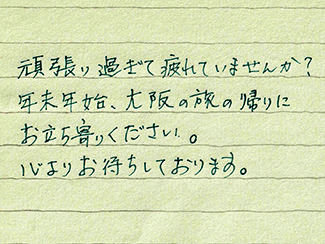 頑張り過ぎて疲れていませんか?
年末年始、大阪の旅の帰りに
お立ち寄りください。
心よりお待ちしております。